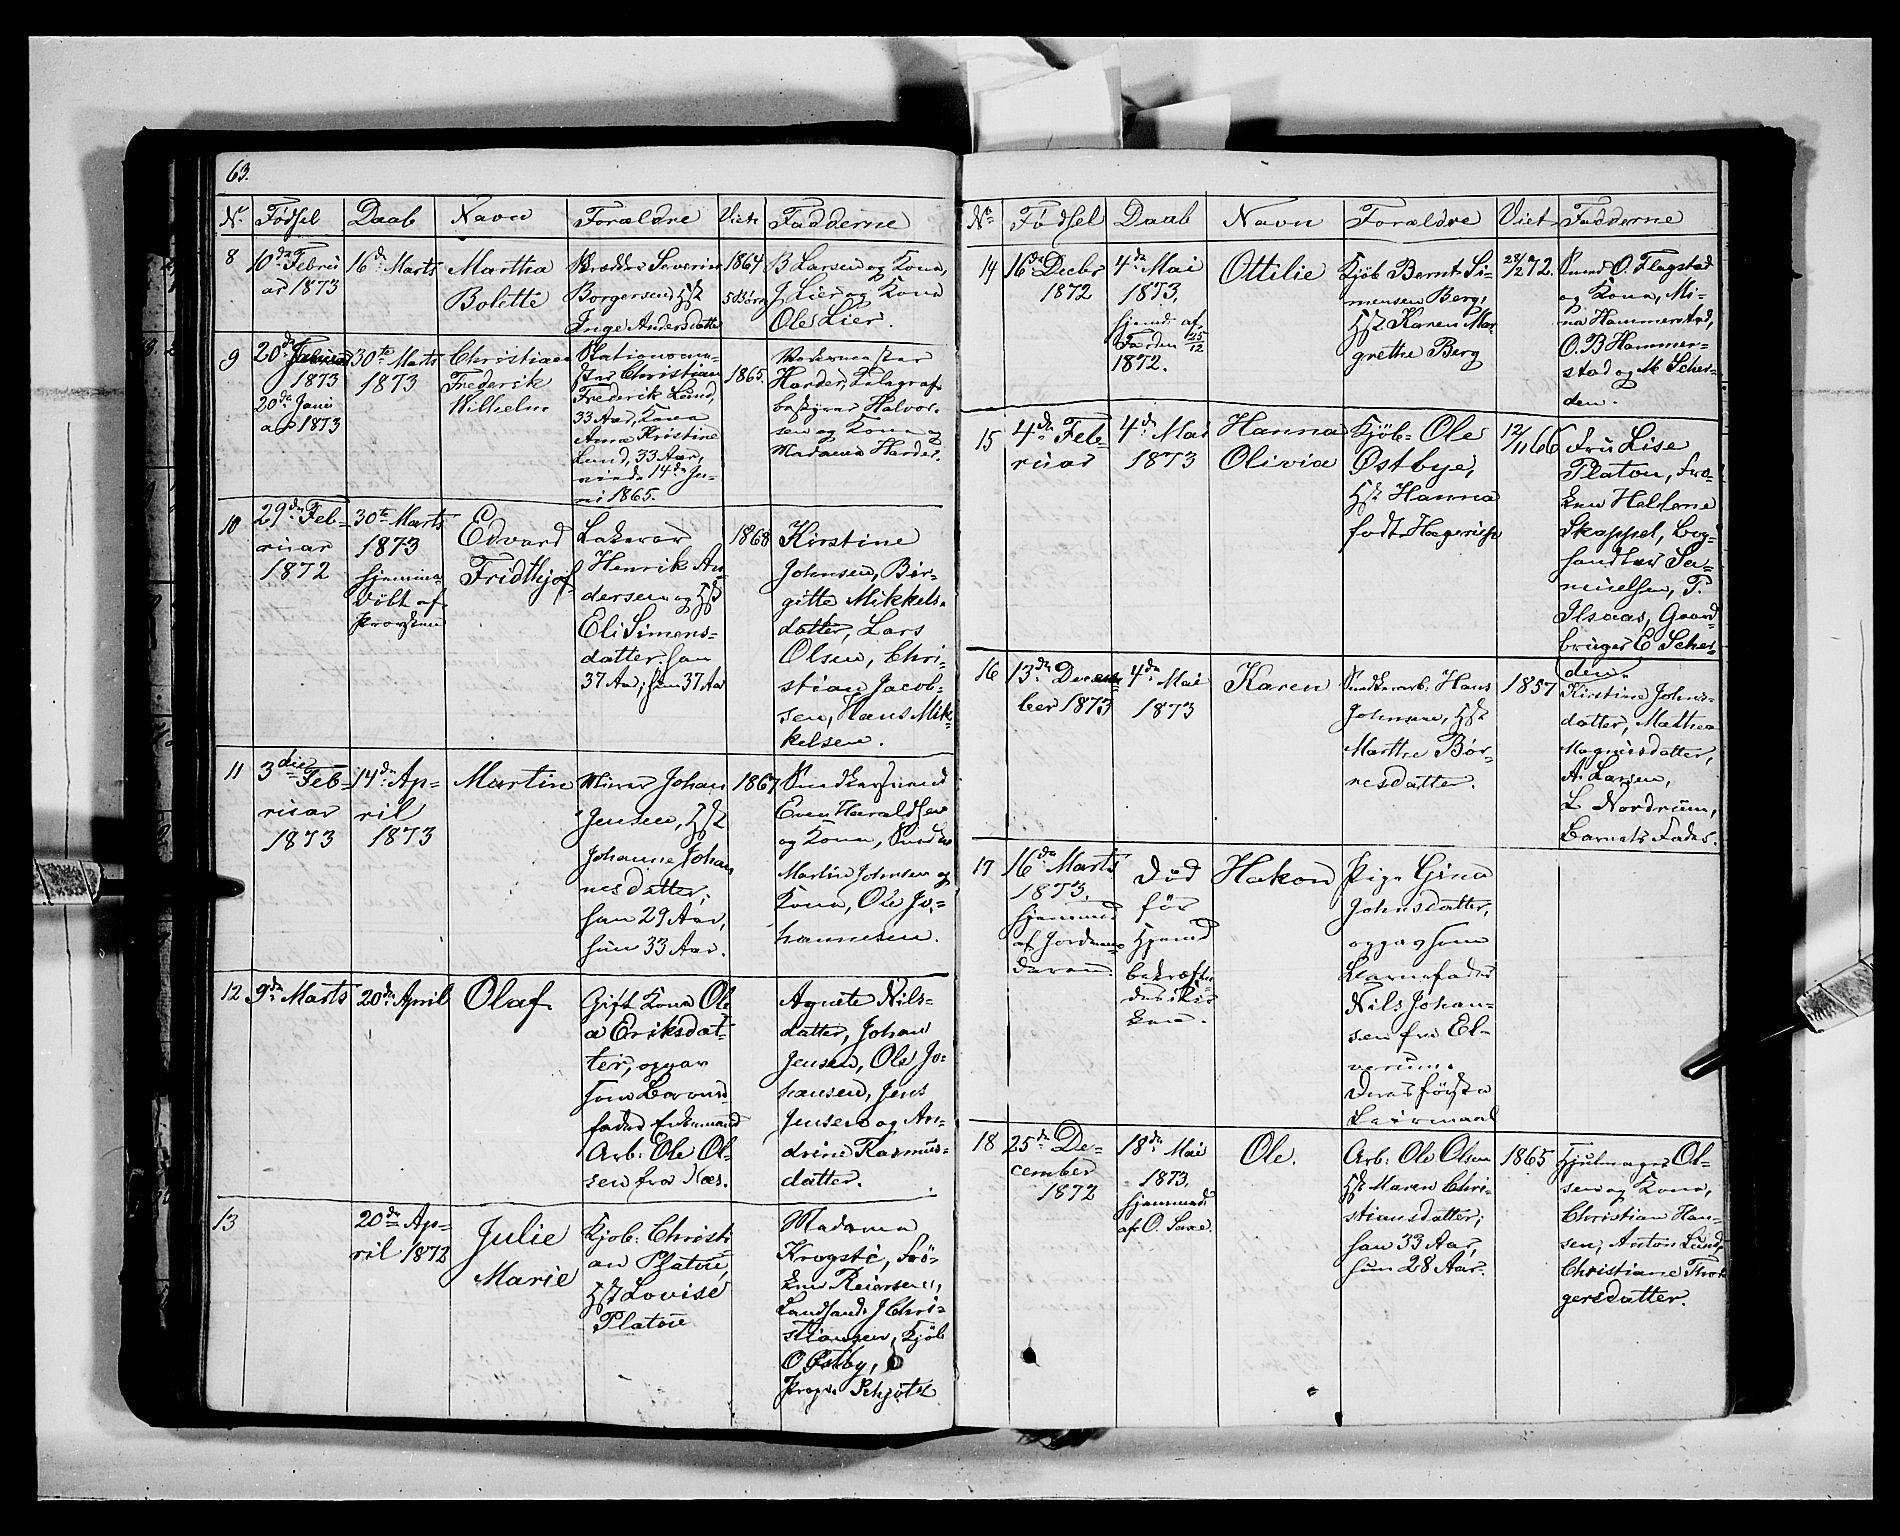 63.
No Fødsel Daab Navn Forældre Viet Fadderne
8 10de Februar 1873
16de Marts
Martha
Bolette
Severin
Borgersen, Hst
Inge Andersdatter
1864
5 Børn
B Larsen og Kona,
J Lier og Kona
Ole Lier.
9 20de
1873
20de Janu
ar 1873
30te Marts
1873
Christian
Frederik
Wilhelm
Christian
Frederik Lund,
33 Aar, Kona
Anna Kristine
Lund, 33 Aar,
viede 14de Ju-
ni 1865.
1865.
Harder, Telegraf-
bestyrer Halvor-
sen og Kona og
Madama Harder.
10 29de Feb-
ruar
1872
30te Marts
1873
hjemme-
døbt af
Provsten
Edvard
Fridthjof
Henrik An-
dersen og Hst
Eli Simens-
datter, han
37 Aar, hun 37 Aar
1868
Kirstine
Johnsen, Bir-
gitte Mikkels-
datter, Lars
Olsen, Chri-
stian Jacob-
sen, Hans Mik-
kelsen.
11 3die Feb-
ruar
1873
14de Ap-
ril
1873
Martin
Johan
Jensen, Hst
Johanne Johan
nesdatter,
han 29 Aar,
hun 33 Aar.
1867
Snedkersvend
Even Haraldsen
og Kona,
Martin Johnsen og
Kona, Ole Jo-
hannesen.
12 9de Marts
20de April
Olaf
Gift Kona Ole
a Eriksdat-
ter, opgav
som Barne-
fader
Arb: Ole Ol-
sen fra Næs.
Agnete Nils-
datter, Johan
Jensen, Ole Jo-
hansen, Jens
Jensen og An-
drine Rasmus-
datter.
13
20de Ap-
ril 1872
Julie
Marie
Kjøb: Christi
an Platou,
Hst Lovise
Platou
Madama
Krogsti, Frø-
ken Reiersen,
Landhand: J Chri-
stiansen, Kjøb
O Østby,
Schjøtt
No Fødsel Daab Navn Forældre Viet Fadderne
14 16de Decbr
1872
4de Mai
1873,
hjemd: af
Jorden 25/12
1872.
Ottilie
Kjøb Bernt Si-
mensen Berg,
Hst Karen Mar
grethe Berg
28/12 72.
Smed O. Flagstad
og Kona, Mi-
na Hammerstad,
O. B Hammer-
stad og M Scher-
den.
15 4de Feb-
ruar
4de Mai
1873
Hanna
Olivia
Kjøb: Ole
Østbye,
Hst Hanna
født
12/11 66
Fru Lise
Platou, Frø-
ken Helene
Skappel, Bog-
handler Sa-
muelsen, P.
Ilsaas, Gaard-
bruger E Scher-
den.
16 13de Decem-
ber 1873
4de Mai
1873
Karen
Snedkerarb. Hans
Johnsen, Hst
Marthe Bør-
resdatter.
1857
Kirstine Johns-
datter, Mathea
Magnusdatter,
A. Larsen,
L Nordrum,
Barnets Fader.
17 16de Marts
1873,
hjemmed
af Jordmo-
deren
Død
før
Hjemd
bekræfte-
des i Kir
ken.
Hakon
Pige Gina
Johnsdatter,
opgav som
Barnefader
Nils Johan-
sen fra El-
verum.
Deres første
Leiermaal
18 25de De-
cember
1872
18de Mai
1873,
hjemmed:
af O. Saxe.
Ole.
Arb: Ole Olsen
Hst Maren Chri-
stiansdatter;
han 33 Aar,
hun 28 Aar.
1865
Hjulmager Ol-
sen og Kona,
Christian Han-
sen, Anton Lund,
Christiane Thor
gersdatter.